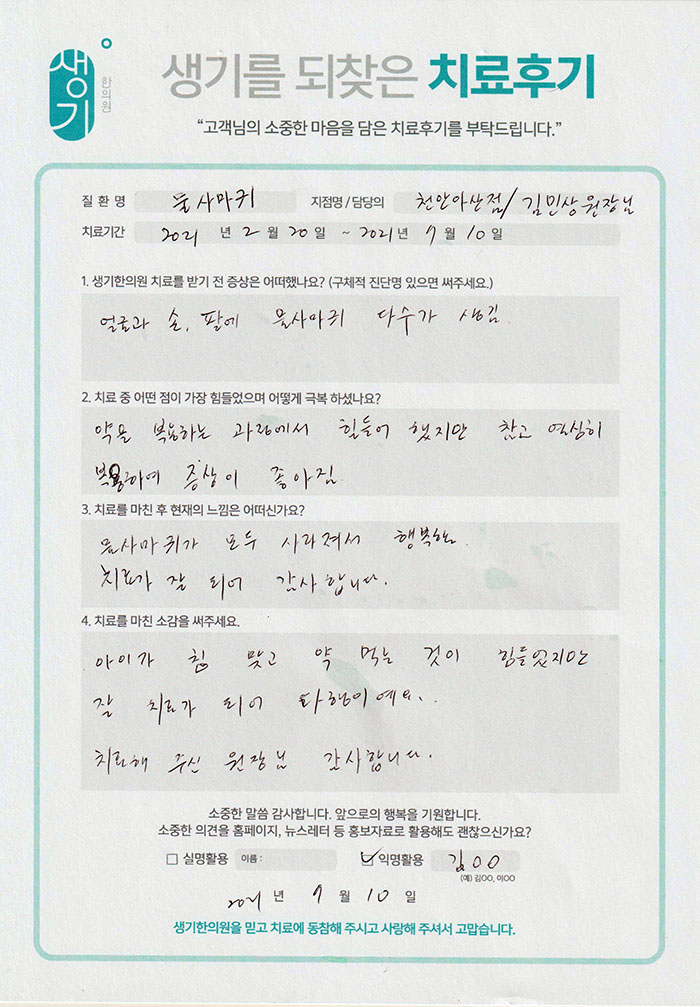 생기
한의원
생기를 되찾은 치료후기
“고객님의 소중한 마음을 담은 치료후기를 부탁드립니다.”
질 환 명 물사마귀 지점명 / 담당의 천안아산점/ 김민상원장님
치료기간 2021 년 2 월 20 일 ~ 2021 년 7 월 10 일
1. 생기한의원 치료를 받기 전 증상은 어떠했나요? (구체적 진단명 있으면 써주세요.)
얼굴과 손, 팔에 물사마귀 다수가 생김
2. 치료 중 어떤 점이 가장 힘들었으며 어떻게 극복 하셨나요?
약을 복용하는 과정에서 힘들어 했지만 참고 열심히
복용하여 증상이 좋아짐
3. 치료를 마친 후 현재의 느낌은 어떠신가요?
물사마귀가 모두 사라져서 행복해.
치료가 잘 되어 감사합니다.
4. 치료를 마친 소감을 써주세요.
아이가 침 맞고 약 먹는 것이 힘들었지만
잘 치료가 되어 다행이예요..
치료해 주신 원장님 감사합니다.
소중한 말씀 감사합니다. 앞으로의 행복을 기원합니다.
소중한 의견을 홈페이지, 뉴스레터 등 홍보자료로 활용해도 괜찮으신가요?
실명활용 이름 : 익명활용 김OO
(예) 김OO, 이OO
2021 년 7 월 10 일
생기한의원을 믿고 치료에 동참해 주시고 사랑해 주셔서 고맙습니다.